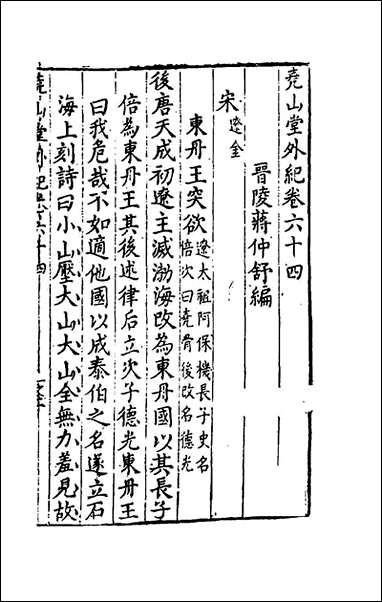 堯山堂外紀卷六十四
晋陵蔣仲舒編
宋遼金
東丹王突欲遼太祖阿保機長子史名
倍次曰堯骨後改名德光
後唐天成初遼主滅渤海改為東丹國以其長子
倍為東丹王其後述律后立次子德光東丹王
曰我危哉不如適他國以成泰伯之名遂立石
海上刻詩曰小山壓大山大山全無力羞見故
堯山堂外紀卷六十四